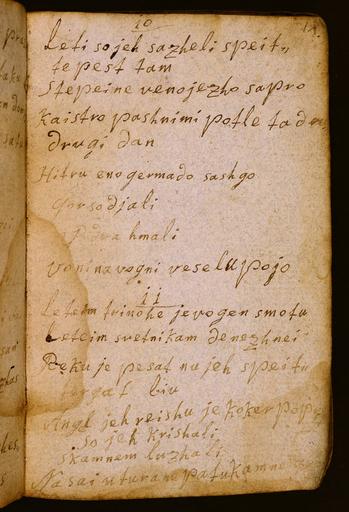 10
Leti so jeh sazheli speit,,
te pest tam
Stepeine venojezho sapro
Kaistro pashnimi potle ta
drugi dan
Hitru eno germado sashgo
Gor so djali
hmali
voni na vogni veselu pojo
11
Leteim trinohe je vogen smotu
Leteim svetnikam denezhnei
Reku je pesat nu jeh speit,,
liu
vingl jeh reishu je koker
so jeh krishali
skamnem luzhali
Na sai uturam patukamne